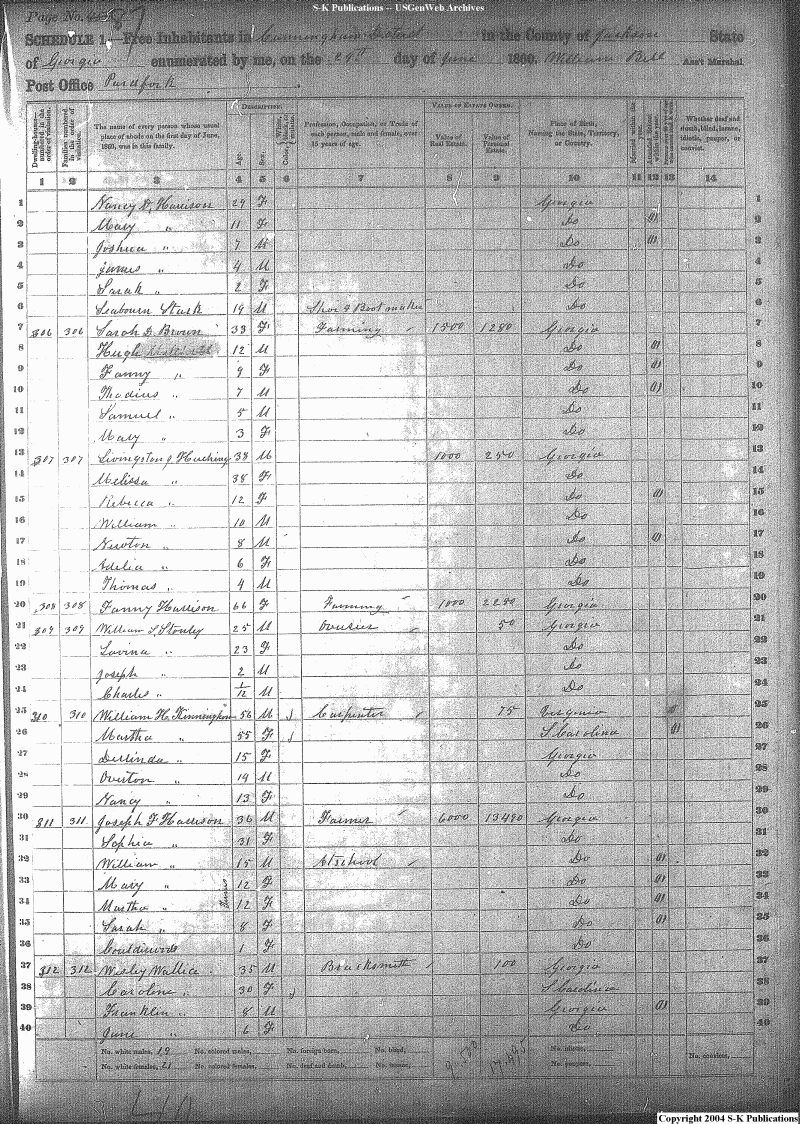 S-K Publications -- USGenWeb Archives
Page No.
SCHEDULE 1.—Free Inhabitants in Cunningham District in the County of Jackson State
of Georgia enumerated by me, on the 29th day of June 1860. William Bell Ass't Marshal
Post Office
DESCRIPTION. VALUE OF ESTATE OWNED.
Dwelling-houses numbered in the order of visitation. Families numbered in the order of visitation. The name of every person whose usual place of abode on the first day of June, 1860, was in this family. Age. Sex. Color, Profession, Occupation, or Trade of each person, male and female, over 15 years of age. Value of Real Estate. Value of Personal Estate. Place of Birth, Naming the State, Territory, or Country. Married within the year. Attended School within the year. Whether deaf and dumb, blind, insane, idiotic, pauper, or convict.
1 2 3 4 5 6 7 8 9 10 11 12 13 14
1 Nancy D. Harrison 29 F Georgia 1
2 Mary " 11 F Do 01 2
3 Joshua " 7 M Do 01 3
4 James " 4 M Do 4
5 Sarah " 2 F Do 5
6 Seabourn Stark 19 M Shoe & Boot maker Do 6
7 306 306 Sarah D. Brown 33 F Farming 1500 1280 Georgia 7
8 Hugh 12 M Do 01 8
9 Fanny " 9 F Do 01 9
10 Thadius " 7 M Do 01 10
11 Samuel " 5 M Do 11
12 Mary " 3 F Do 12
13 307 307 Livingston J Huching 38 M 1000 250 Georgia 13
14 Melissa " 38 F Do 14
15 Rebecca " 12 F Do 01 15
16 William " 10 M Do 16
17 Newton " 8 M Do 01 17
18 Adelia " 6 F Do 18
19 Thomas " 4 M Do 19
20 308 308 Fanny Harrison 66 F Farming 1000 2250 Georgia 20
21 309 309 William S Stonly 25 M Overseer 50 Georgia 21
22 Lovina " 23 F Do 22
23 Joseph " 2 M Do 23
24 Charles " 1/12 M Do 24
25 310 310 William H. Kinningham 56 M Carpenter 75 Virginia 25
26 Martha " 55 F S. Carolina 01 26
27 Derlinda " 15 F Georgia 27
28 Overton " 14 M Do 28
29 Nancy " 13 F Do 29
30 311 311 Joseph F Harrison 36 M Farmer 6000 13490 Georgia 30
31 Sophia " 31 F Do 31
32 William " 15 M At School Do 01 32
33 Mary " 12 F Do 01 33
34 Martha " Twins 12 F Do 01 34
35 Sarah " 8 F Do 01 35
36 1 F Do 36
37 312 312 Wesley Wallice 35 M Blacksmith 100 Georgia 37
38 Caroline " 30 F S Carolina 38
39 Franklin " 8 M Georgia 01 39
40 June " 6 F Do 40
No. white males, 19 No. colored males, No. foreign born, No. blind, 9.500 17.495 No. idiotic, No. convicts,
No. white females, 21 No. colored females, No. deaf and dumb, No. insane, No. paupers,
40
Copyright 2004 S-K Publications